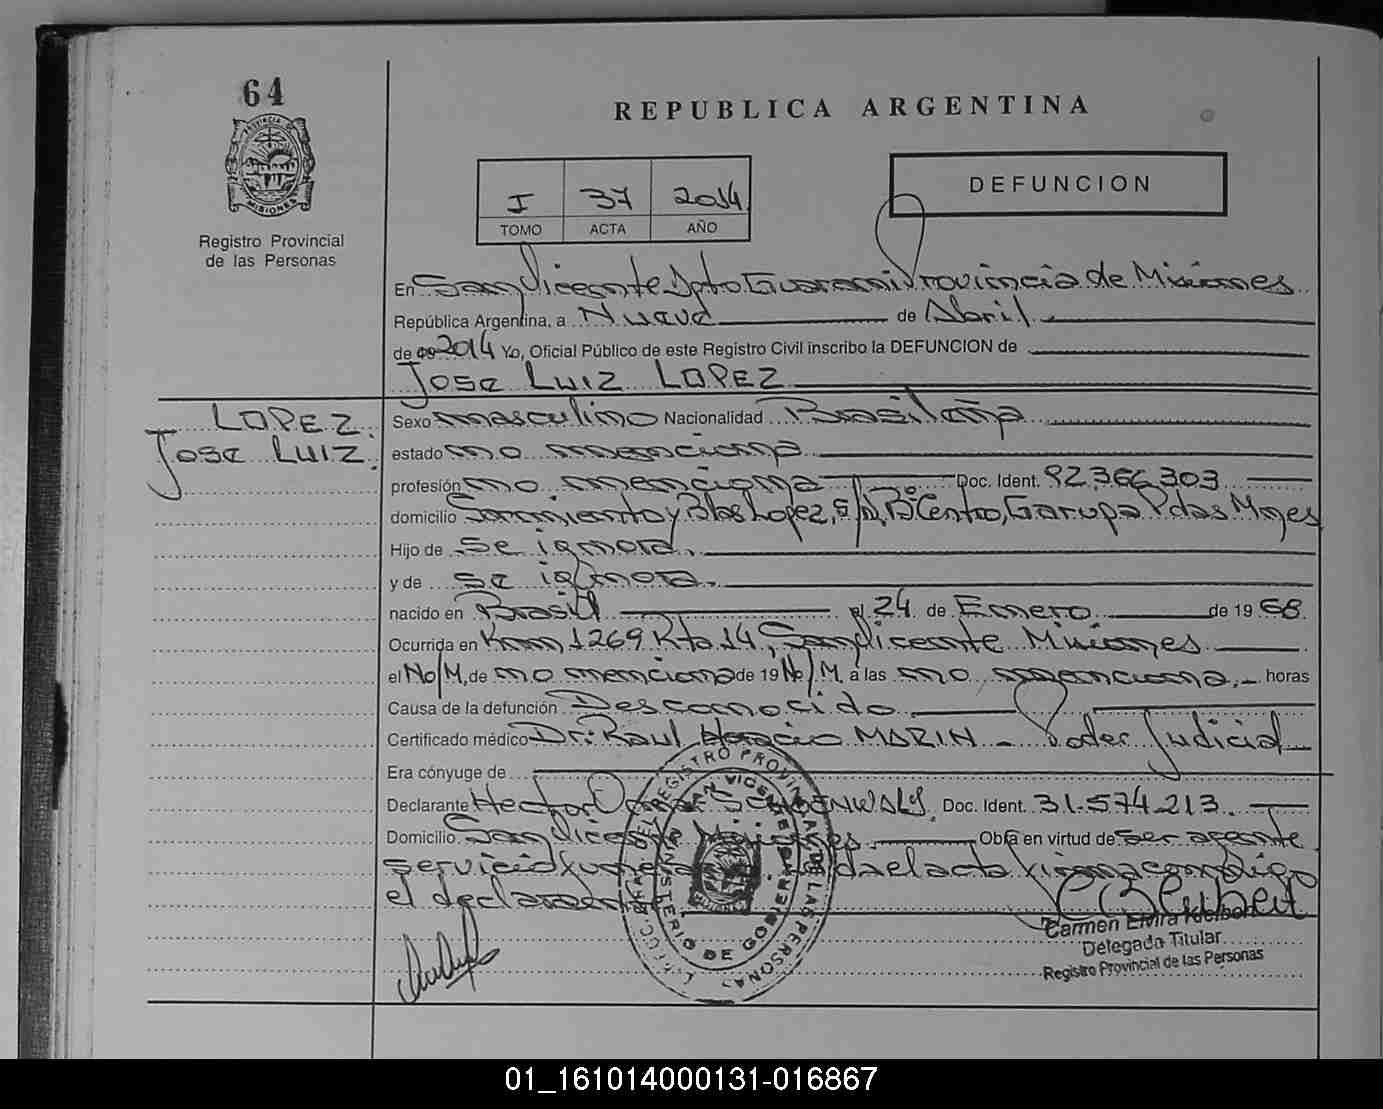 64
PROVINCIA DE
MISIONES
Registro Provincial
de las Personas
REPUBLICA ARGENTINA
I 37 2014
TOMO ACTA AÑO
DEFUNCION
En San Vicente Dpto Guarani Provincia de Misiones
República Argentina, a Nueve de Abril
de 2014 Yo, Oficial Público de este Registro Civil inscribo la DEFUNCION de
Jose Luiz LOPEZ
LOPEZ
Jose LUIZ.
Sexo masculino Nacionalidad Brasileña
estado no menciona
profesión no menciona Doc. Ident. 92.366.303
domicilio Sarmiento y Blas Lopez, s/n, Bº Centro, Garupa Pdas Mnes
Hijo de se ignora.
y de se ignora.
nacido en Brasil el 24 de Enero de 1968.
Ocurrida en Km 1269 Rta 14, San Vicente Misiones
el No/M, de no menciona de 19 No/M a las no menciona, horas
Causa de la defunción Desconocido
Certificado médico Dr: Raul Horacio MARIN - Poder Judicial
Era cónyuge de
Declarante Hector Omar Doc. Ident. 31.574.213.
Domicilio San Vicente Misiones. Obra en virtud de ser agente
servicio funebre leida el acta firma conmigo
el declarante
REGISTRO PROVINCIAL DE LAS PERSONAS
SAN VICENTE
MINISTERIO DE GOBIERNO
Carmen Elvira
Delegada Titular
Registro Provincial de las Personas
01_161014000131-016867